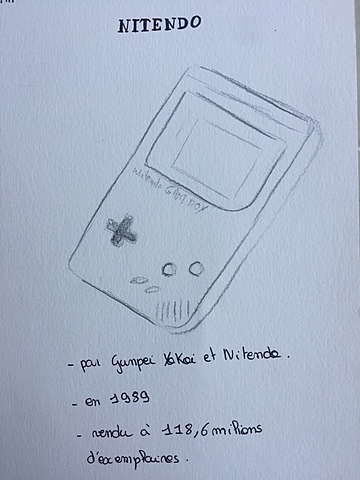 NITENDO
Nintendo GAME BOY
- par Gunpei Yokoi et Nitendo.
- en 1989
- vendu à 118,6 millions
d'exemplaires.